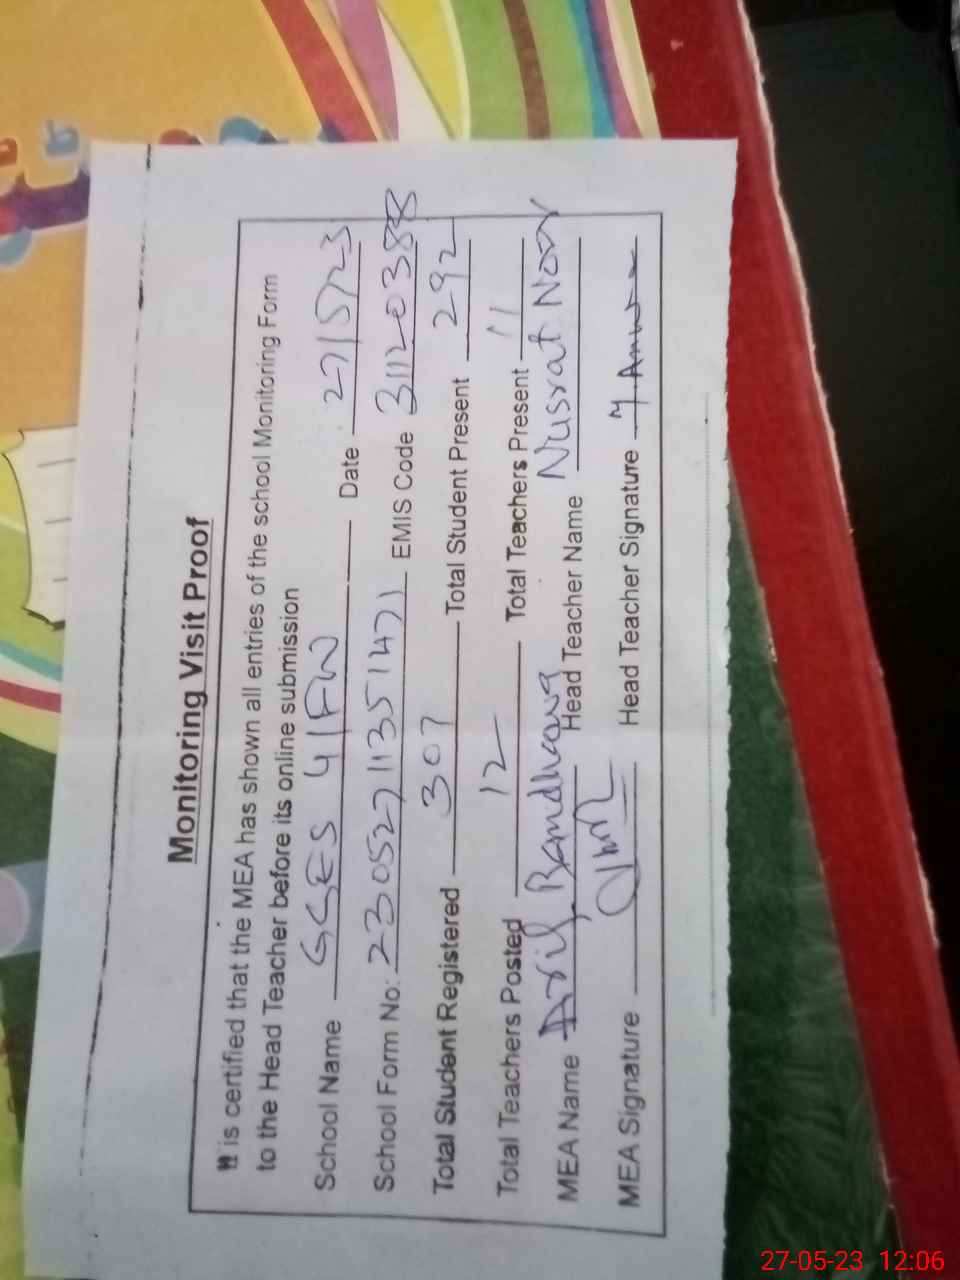 Monitoring Visit Proof
It is certified that the MEA has shown all entries of the school Monitoring Form
to the Head Teacher before its online submission
School Name GGES 4/FW Date 27/5/23
School Form No: 2305271135147) EMIS Code 31120388
Total Student Registered 307 Total Student Present 292
Total Teachers Posted 12 Total Teachers Present 11
MEA Name Arif Head Teacher Name Nusrat Noor
MEA Signature Head Teacher Signature
27-05-23 12:06